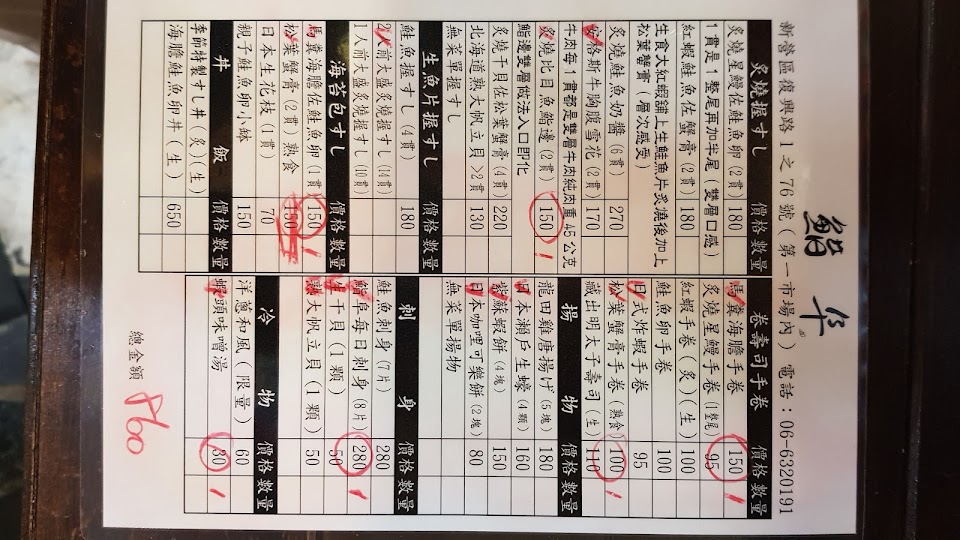 鮨
新營區復興路1之76號(第一市場內) 電話:06-6320191
炙燒握すし 價格 數量
炙燒星鰻佐鮭魚卵(2貫) 180
1貫是1整尾再加半尾(雙層口感)
紅蝦鮭魚佐蟹膏(2貫) 180
生食大紅蝦舖上生鮭魚片炙燒後加上
松葉蟹膏(層次感受)
炙燒鮭魚奶醬(6貫) 270
安格斯牛胸腹雪花(2貫) 170
牛肉每1貫都是雙層牛肉純肉重45公克
炙燒比目魚鮨邊(2貫) 150
鮨邊雙層做法入口即化
炙燒干貝佐松葉蟹膏(4貫) 220
北海道熟大帆立貝>2貫 130
無菜單握すし
生魚片握すし 價格 數量
鮭魚握すし(4貫) 180
2人前大盛炙燒握すし(14貫)
1人前大盛炙燒握すし(10貫)
海苔包すし 價格 數量
馬糞海膽佐鮭魚卵(1貫) 150
松葉蟹膏(2貫)熟食 150
日本生花枝(1貫) 70
親子鮭魚卵小缽 150
丼飯 價格 數量
季節特製すし丼(炙)(生)
海膽鮭魚卵丼(生) 650
卷壽司手卷 價格 數量
馬糞海膽手卷 150
炙燒星鰻手卷(1整尾) 95
紅蝦手卷(炙)(生) 100
鮭魚卵手卷 100
日式炸蝦手卷 95
松葉蟹膏手卷(熟食) 100
藏出明太子壽司(生) 110
揚物 價格 數量
龍田雞唐揚げ(5塊) 180
日本瀨戶生蠔(4顆) 160
紫蘇蝦餅(4塊) 150
日本咖哩可樂餅(2塊) 80
無菜單揚物
刺身 價格 數量
鮭魚刺身(7片) 280
鮨阜每日刺身(8片) 280
生干貝(1顆) 50
熟大帆立貝(1顆) 50
冷物 價格 數量
洋蔥和風(限量) 60
蝦頭味噌湯 30
總金額 860